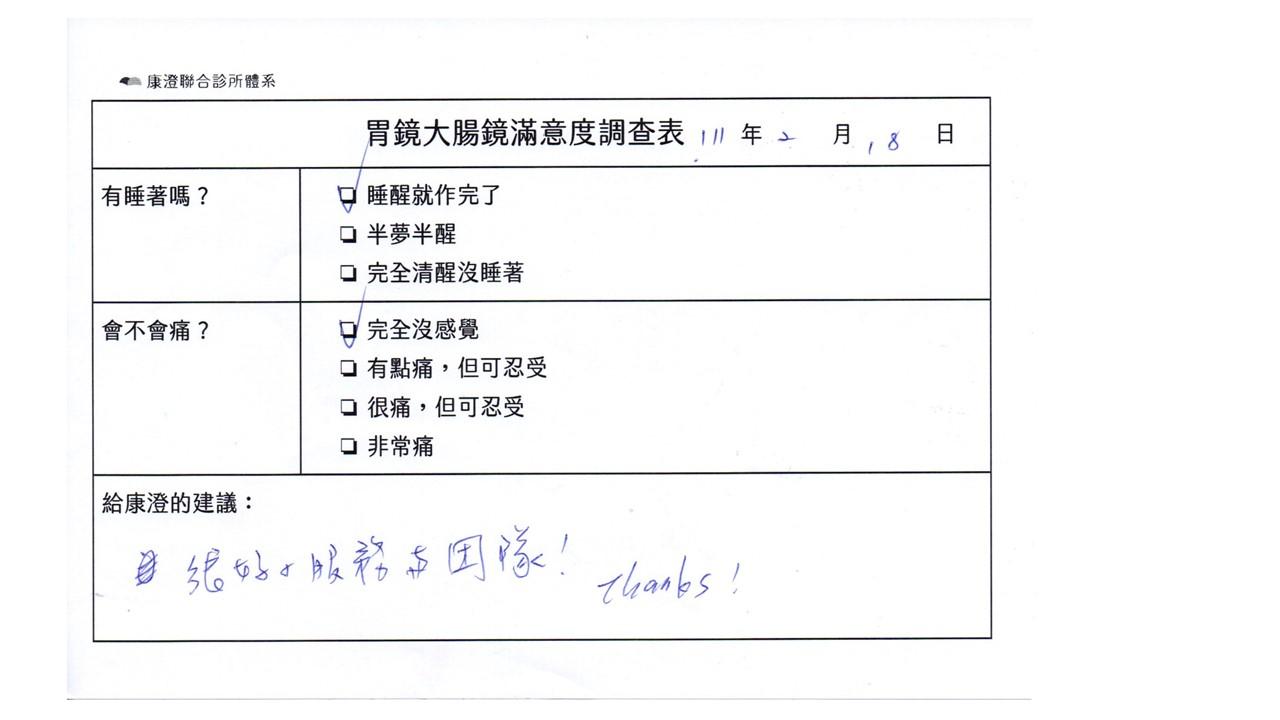 康澄聯合診所體系
胃鏡大腸鏡滿意度調查表 111 年 2 月 18 日
有睡著嗎？
睡醒就作完了
半夢半醒
完全清醒沒睡著
會不會痛？
完全沒感覺
有點痛，但可忍受
很痛，但可忍受
非常痛
給康澄的建議：
很好的服務與團隊！
thanks！